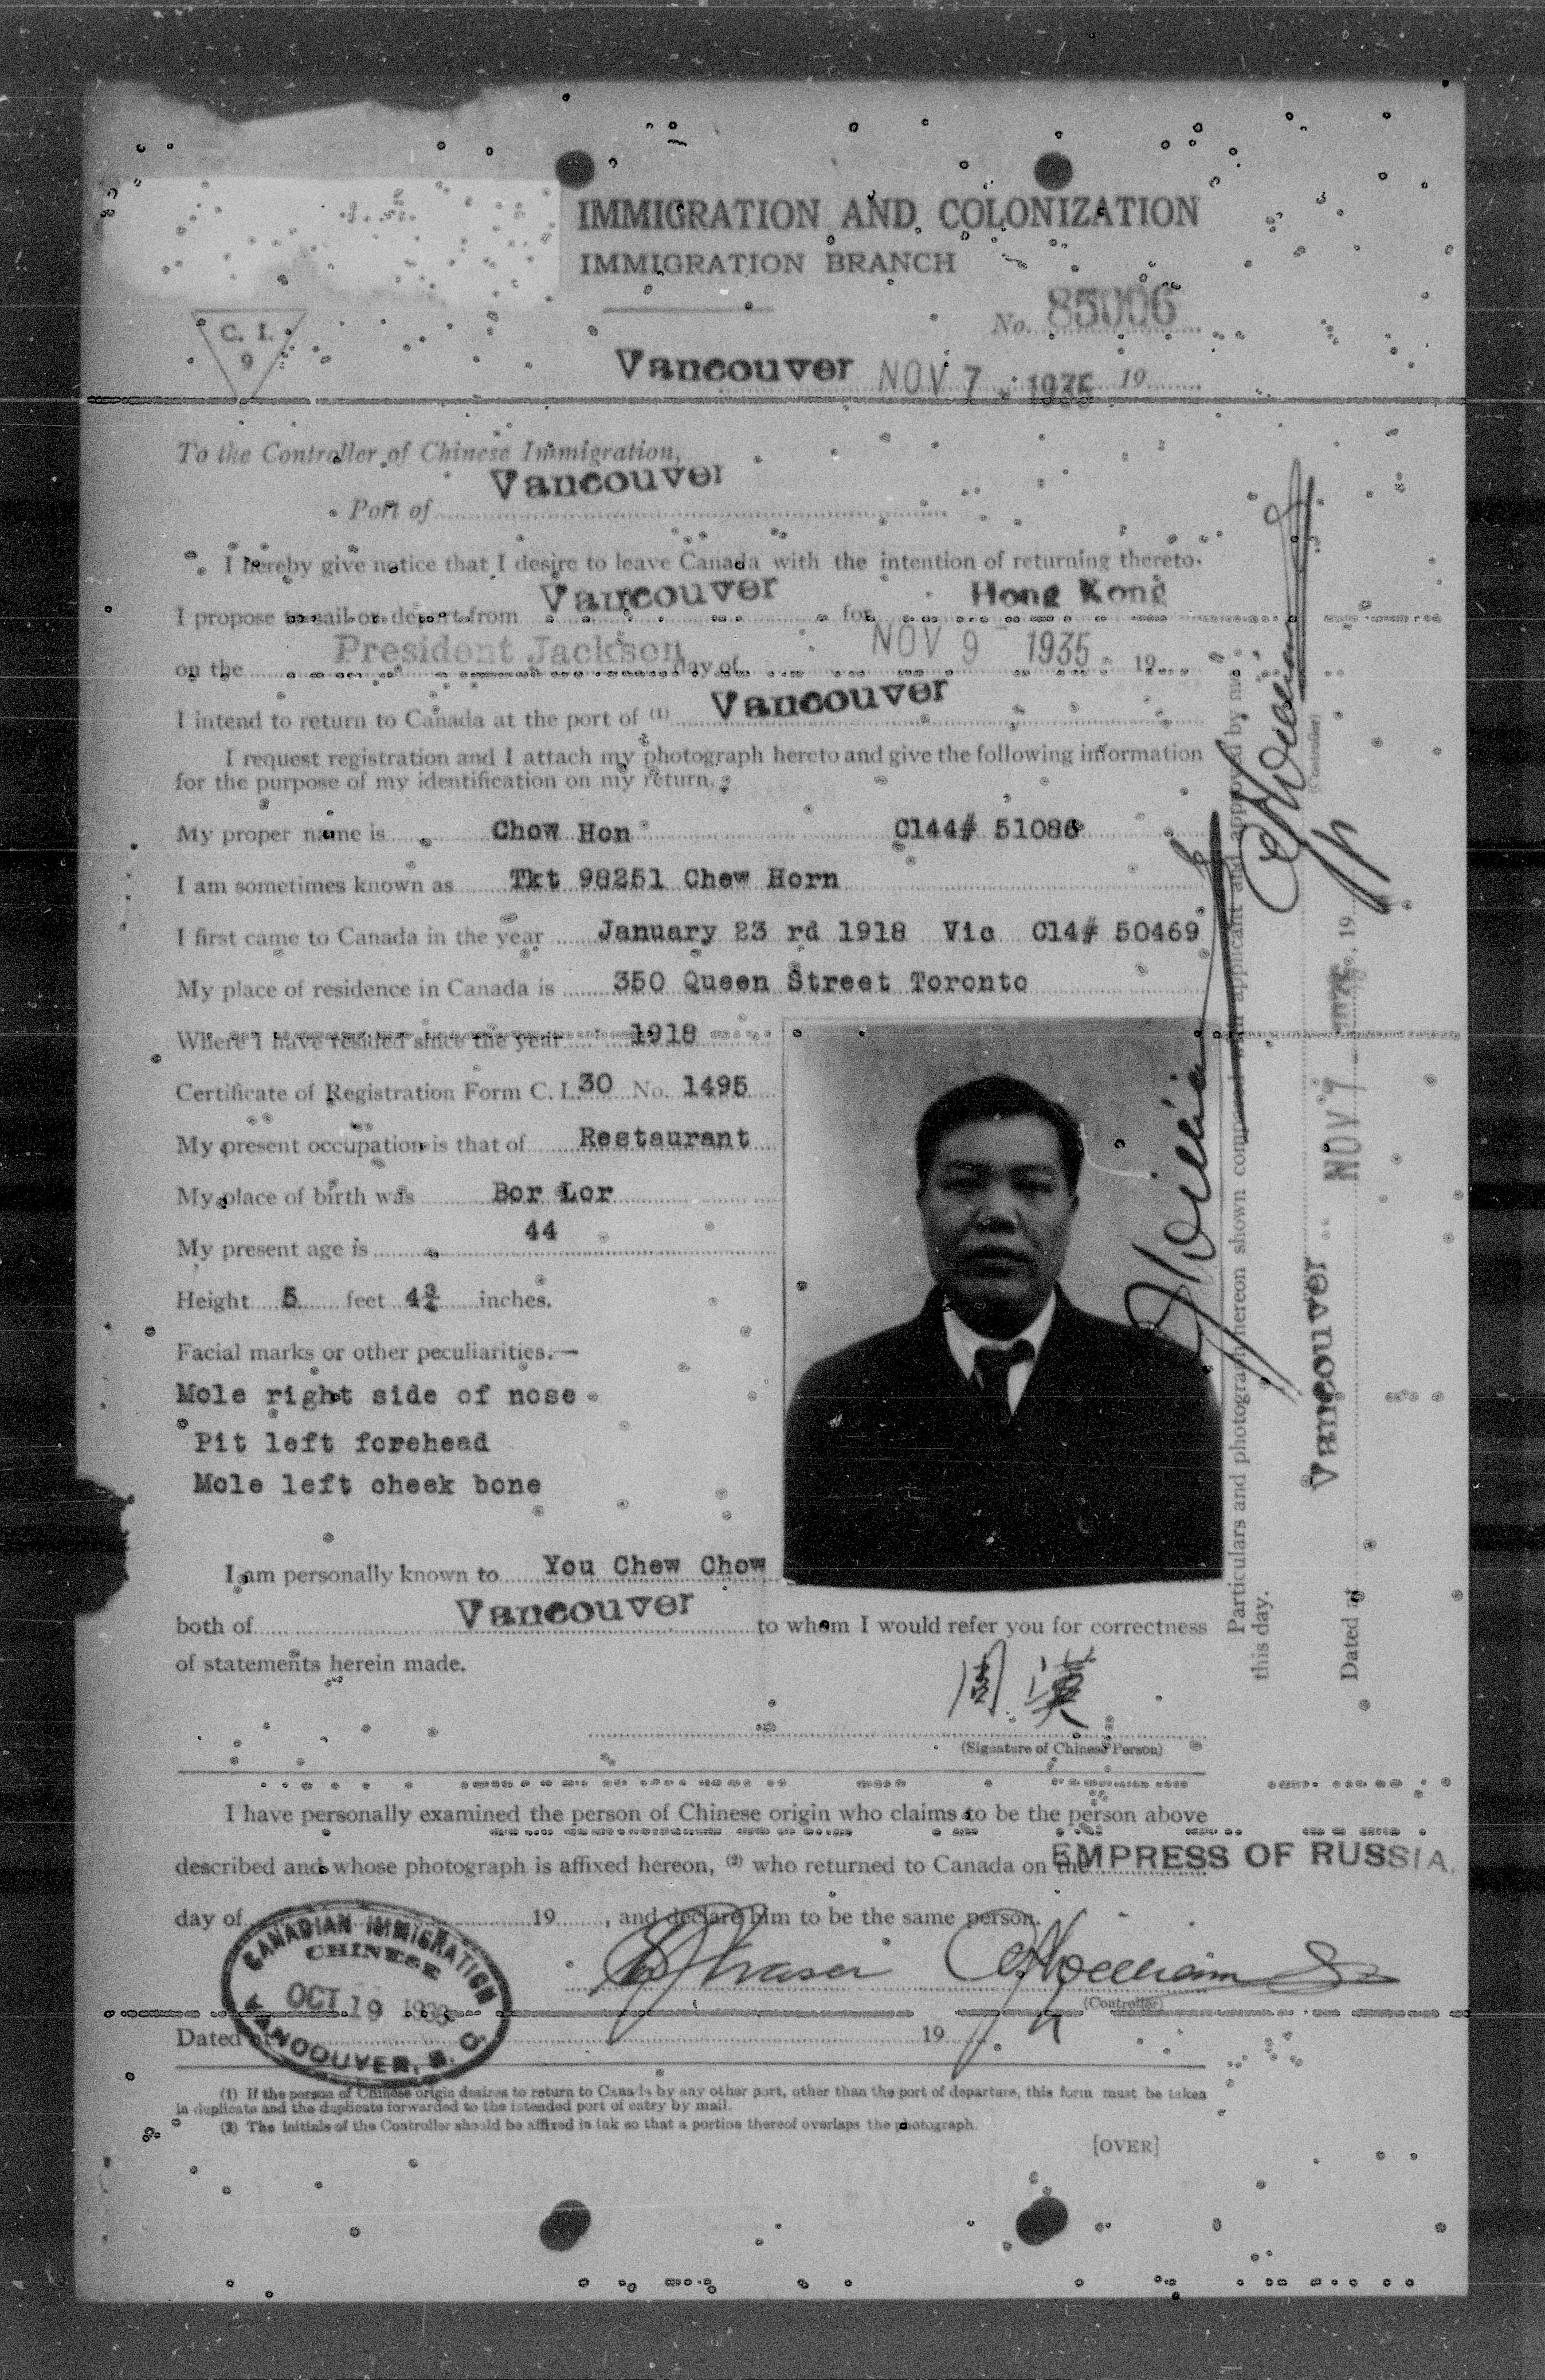 IMMIGRATION AND COLONIZATION
IMMIGRATION BRANCH
C. I.
9
No. 85006
Vancouver NOV 7 1935 19
To the Controller of Chinese Immigration,
Port of Vancouver
I hereby give notice that I desire to leave Canada with the intention of returning thereto.
I propose to sail or depart from Vancouver for Hong Kong
on the President Jackson day of NOV 9 1935 19
I intend to return to Canada at the port of (1) Vancouver
I request registration and I attach my photograph hereto and give the following information
for the purpose of my identification on my return.
My proper name is Chow Hon C144# 51086
I am sometimes known as Tkt 98251 Chew Horn
I first came to Canada in the year January 23 rd 1918 Vic C14# 50469
My place of residence in Canada is 350 Queen Street Toronto
Where I have resided since the year 1918
Certificate of Registration Form C. I. 30 No. 1495
My present occupation is that of Restaurant
My place of birth was Bor Lor
My present age is 44
Height 5 feet 4¾ inches.
Facial marks or other peculiarities.—
Mole right side of nose
Pit left forehead
Mole left cheek bone
I am personally known to You Chew Chow
both of Vancouver to whom I would refer you for correctness
of statements herein made.
周漢
(Signature of Chinese Person)
I have personally examined the person of Chinese origin who claims to be the person above
described and whose photograph is affixed hereon, (2) who returned to Canada on the EMPRESS OF RUSSIA.
day of 19 , and declare him to be the same person.
(Controller)
CANADIAN IMMIGRATION
CHINESE
OCT 19
VANCOUVER, B. C.
Dated at 19
(1) If the person of Chinese origin desires to return to Canada by any other port, other than the port of departure, this form must be taken
in duplicate and the duplicate forwarded to the intended port of entry by mail.
(2) The initials of the Controller should be affixed in ink so that a portion thereof overlaps the photograph.
[OVER]
Particulars and photograph hereon shown compared with applicant and approved by me
this day.
(Controller)
Dated at Vancouver NOV 7 19